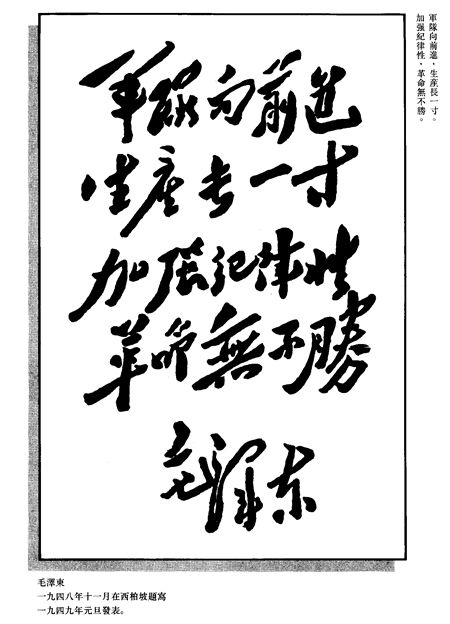 軍隊向前進
生產長一寸
加强紀律性
革命無不勝
毛澤東
軍隊向前進，生産長一寸。
加强紀律性，革命無不勝。
毛澤東
一九四八年十一月在西柏坡題寫
一九四九年元旦發表。